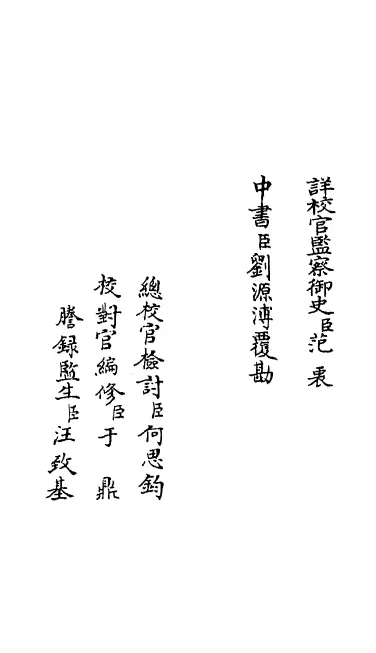 詳校官監察御史臣范衷
中書臣劉源溥覆勘
總校官檢討臣何思鈞
校對官編修臣于鼎
謄錄監生臣汪致基